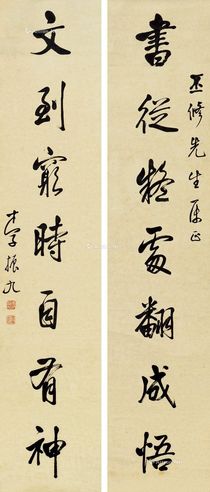 丕修先生屬正
書從疑處翻成悟
文到窮時自有神
振九